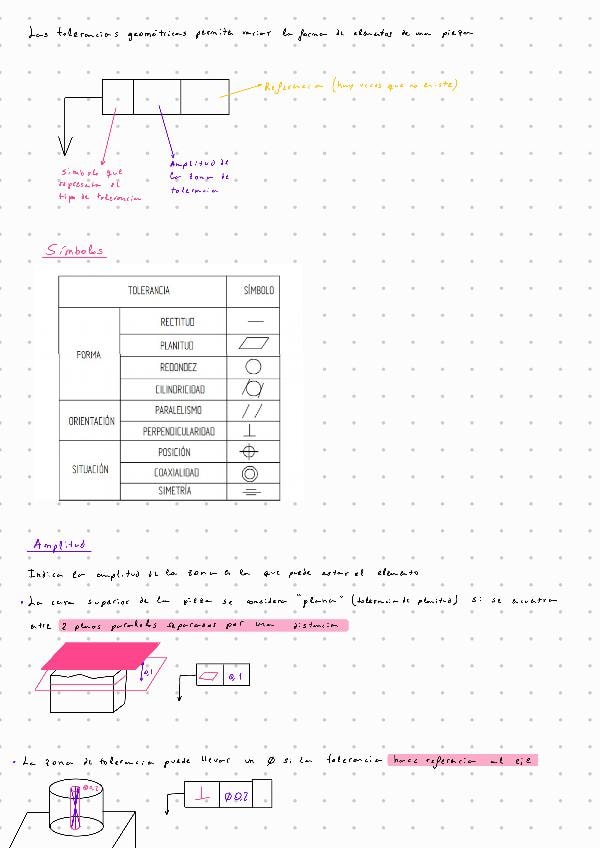 Las tolerancias geométricas permite variar la forma de elementos de una pieza
Referencia (hay veces que no existe)
Símbolo que
representa el
tipo de tolerancia
Amplitud de
la zona de
tolerancia
Símbolos
TOLERANCIA SÍMBOLO
FORMA
RECTITUD
PLANITUD
REDONDEZ
CILINDRICIDAD
ORIENTACIÓN
PARALELISMO
PERPENDICULARIDAD
SITUACIÓN
POSICIÓN
COAXIALIDAD
SIMETRÍA
Amplitud
Indica la amplitud de la zona en la que puede estar el elemento
• La cara superior de la pieza se considera "plana" (tolerancia de planitud) si se encuentra
entre 2 planos paralelos separados por una distancia
0,1
0,1
• La zona de tolerancia puede llevar un Ø si la tolerancia hace referencia al eje
Ø0,2
Ø0,2